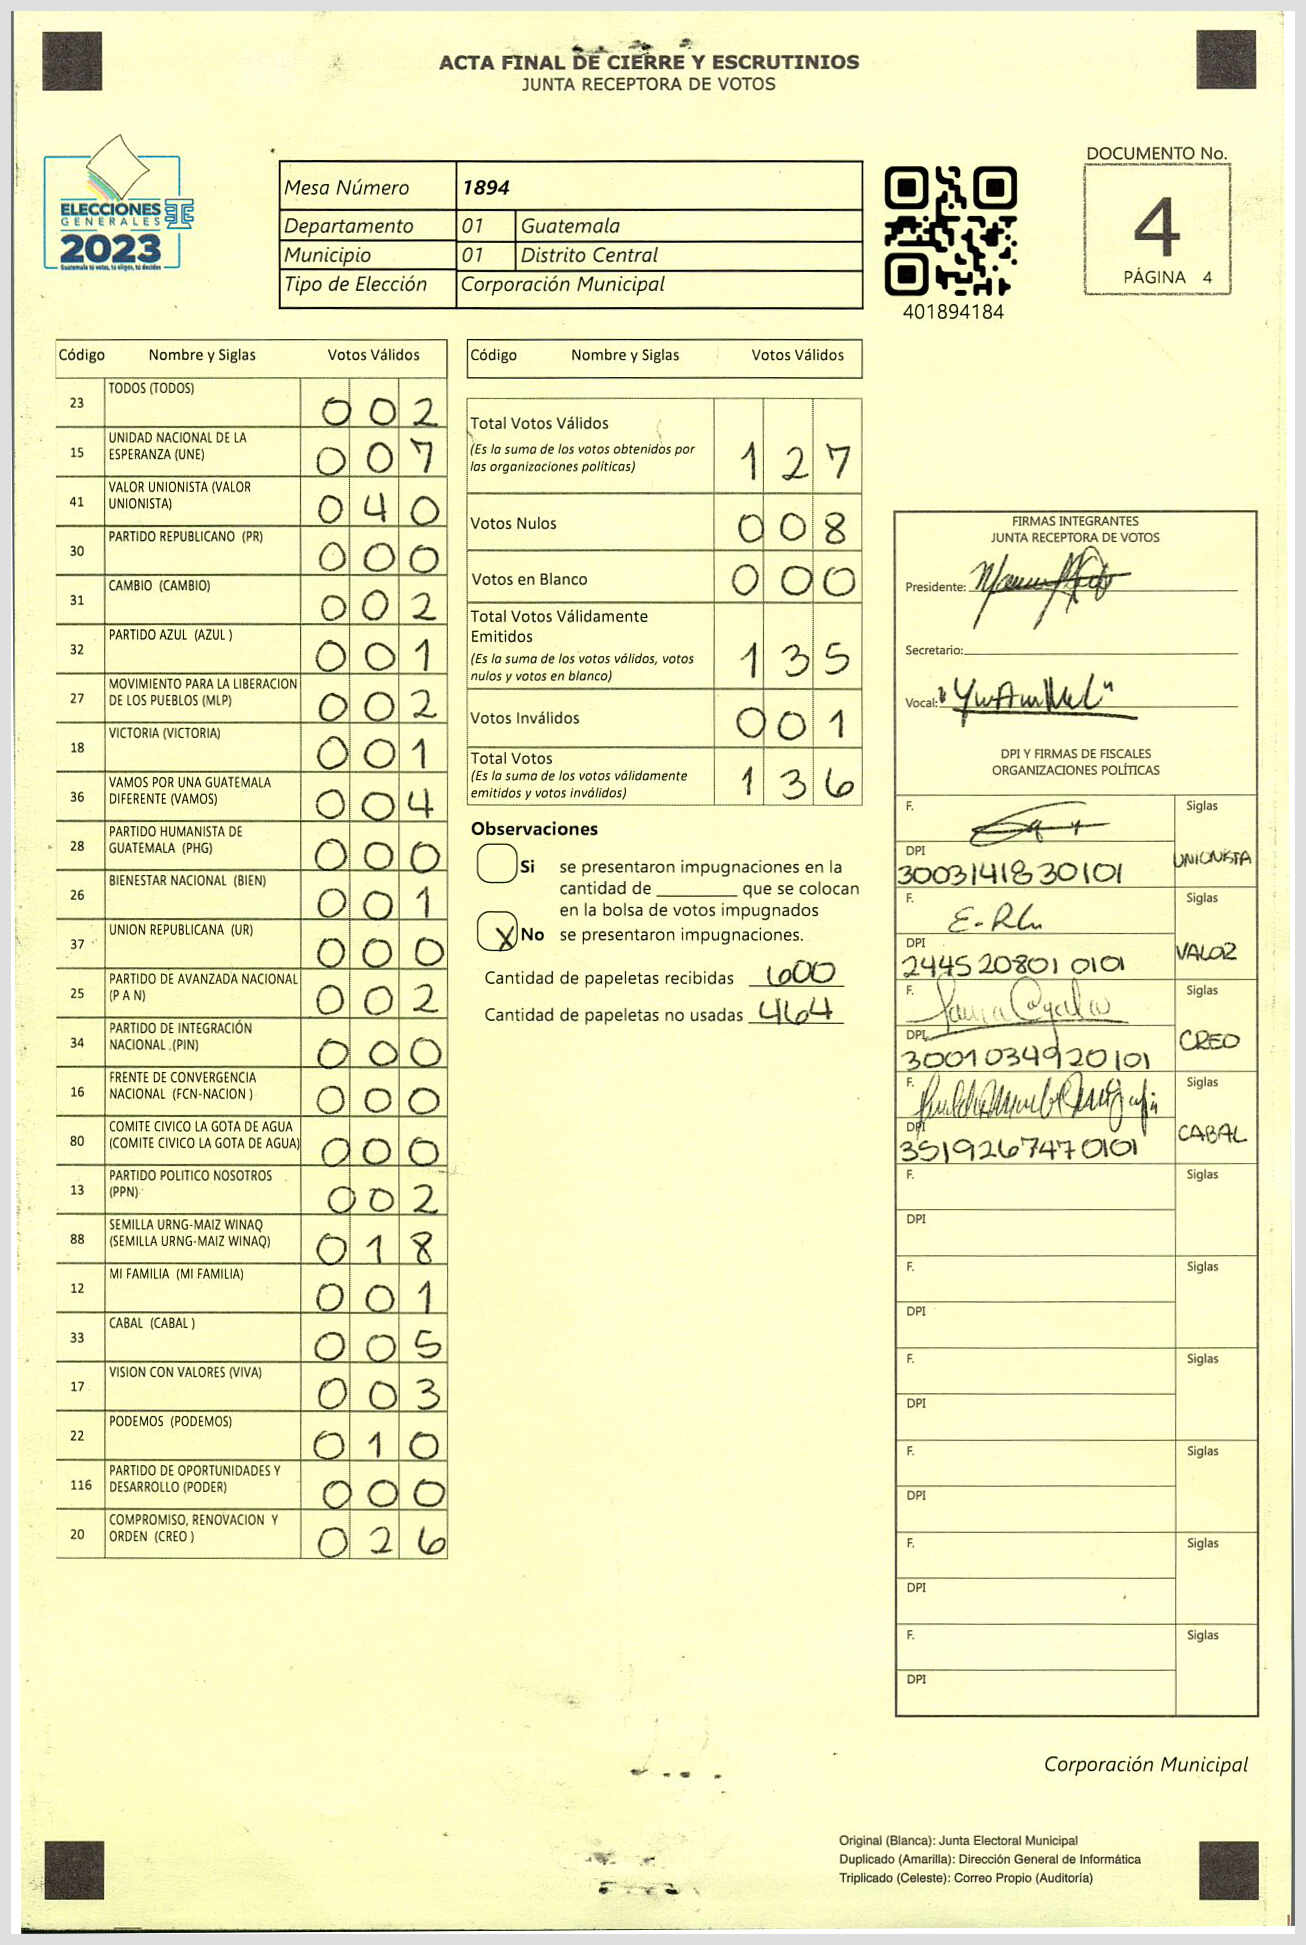 ACTA FINAL DE CIERRE Y ESCRUTINIOS
JUNTA RECEPTORA DE VOTOS
ELECCIONES
GENERALES
2023
Guatemala tú votas, tú eliges, tú decides
Mesa Número 1894
Departamento 01 Guatemala
Municipio 01 Distrito Central
Tipo de Elección Corporación Municipal
401894184
DOCUMENTO No.
4
PÁGINA 4
Código Nombre y Siglas Votos Válidos
23 TODOS (TODOS) 002
15 UNIDAD NACIONAL DE LA
ESPERANZA (UNE) 007
41 VALOR UNIONISTA (VALOR
UNIONISTA) 040
30 PARTIDO REPUBLICANO (PR) 000
31 CAMBIO (CAMBIO) 002
32 PARTIDO AZUL (AZUL ) 001
27 MOVIMIENTO PARA LA LIBERACION
DE LOS PUEBLOS (MLP) 002
18 VICTORIA (VICTORIA) 001
36 VAMOS POR UNA GUATEMALA
DIFERENTE (VAMOS) 004
28 PARTIDO HUMANISTA DE
GUATEMALA (PHG) 000
26 BIENESTAR NACIONAL (BIEN) 001
37 UNION REPUBLICANA (UR) 000
25 PARTIDO DE AVANZADA NACIONAL
(P A N) 002
34 PARTIDO DE INTEGRACIÓN
NACIONAL .(PIN) 000
16 FRENTE DE CONVERGENCIA
NACIONAL (FCN-NACION ) 000
80 COMITE CIVICO LA GOTA DE AGUA
(COMITE CIVICO LA GOTA DE AGUA) 000
13 PARTIDO POLITICO NOSOTROS
(PPN) 002
88 SEMILLA URNG-MAIZ WINAQ
(SEMILLA URNG-MAIZ WINAQ) 018
12 MI FAMILIA (MI FAMILIA) 001
33 CABAL (CABAL ) 005
17 VISION CON VALORES (VIVA) 003
22 PODEMOS (PODEMOS) 010
116 PARTIDO DE OPORTUNIDADES Y
DESARROLLO (PODER) 000
20 COMPROMISO, RENOVACION Y
ORDEN (CREO ) 026
Código Nombre y Siglas Votos Válidos
Total Votos Válidos
(Es la suma de los votos obtenidos por
las organizaciones políticas) 127
Votos Nulos 008
Votos en Blanco 000
Total Votos Válidamente
Emitidos
(Es la suma de los votos válidos, votos
nulos y votos en blanco) 135
Votos Inválidos 001
Total Votos
(Es la suma de los votos válidamente
emitidos y votos inválidos) 136
Observaciones
Si se presentaron impugnaciones en la
cantidad de ________ que se colocan
en la bolsa de votos impugnados
X No se presentaron impugnaciones.
Cantidad de papeletas recibidas 600
Cantidad de papeletas no usadas 464
FIRMAS INTEGRANTES
JUNTA RECEPTORA DE VOTOS
Presidente:
Secretario:
Vocal:
DPI Y FIRMAS DE FISCALES
ORGANIZACIONES POLÍTICAS
F. Siglas
DPI UNIONISTA
3003141830101
F. Siglas
DPI VALOR
2445208010101
F. Siglas
DPI CREO
3001034920101
F. Siglas
DPI CABAL
3519267470101
F. Siglas
DPI
F. Siglas
DPI
F. Siglas
DPI
F. Siglas
DPI
F. Siglas
DPI
F. Siglas
DPI
Corporación Municipal
Original (Blanca): Junta Electoral Municipal
Duplicado (Amarilla): Dirección General de Informática
Triplicado (Celeste): Correo Propio (Auditoría)